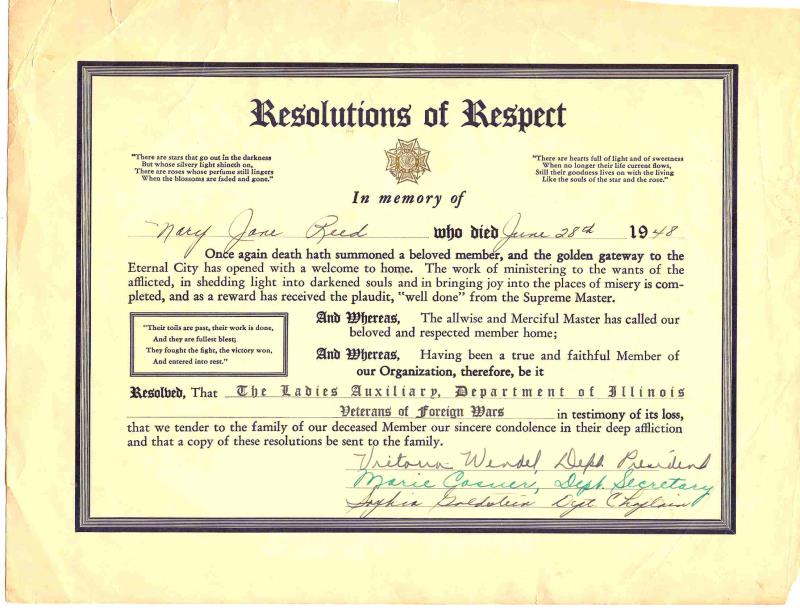 Resolutions of Respect
"There are stars that go out in the darkness
But whose silvery light shineth on,
There are roses whose perfume still lingers
When the blossoms are faded and gone."
"There are hearts full of light and of sweetness
When no longer their life current flows,
Still their goodness lives on with the living
Like the souls of the star and the rose."
In memory of
Mary Jane Reed who died June 28th 1948
Once again death hath summoned a beloved member, and the golden gateway to the
Eternal City has opened with a welcome to home. The work of ministering to the wants of the
afflicted, in shedding light into darkened souls and in bringing joy into the places of misery is com-
pleted, and as a reward has received the plaudit, "well done" from the Supreme Master.
"Their toils are past, their work is done,
And they are fullest blest;
They fought the fight, the victory won,
And entered into rest."
And Whereas, The allwise and Merciful Master has called our
beloved and respected member home;
And Whereas, Having been a true and faithful Member of
our Organization, therefore, be it
Resolved, That The Ladies Auxiliary, Department of Illinois
Veterans of Foreign Wars in testimony of its loss,
that we tender to the family of our deceased Member our sincere condolence in their deep affliction
and that a copy of these resolutions be sent to the family.
Wendel, Dept. President
Marie Cosner, Dept. Secretary
Sophia Goldstein Dept. Chaplain